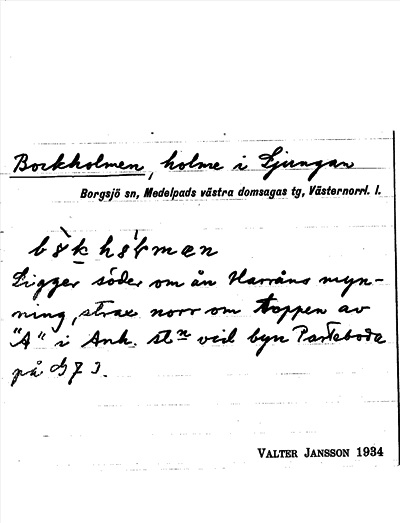 Bockholmen, holme i Ljungan
Borgsjö sn, Medelpads västra domsagas tg, Västernorrl. l.
Ligger söder om ån Harråns myn-
ning, strax norr om toppen av
"A" i Anh. stn vid byn Parteboda
på
VALTER JANSSON 1934